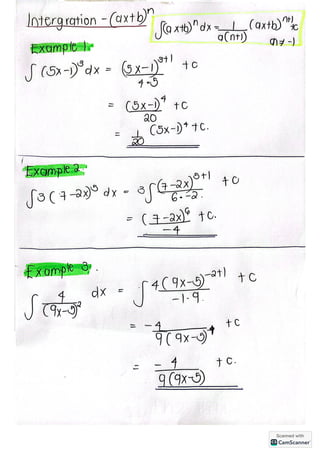 Intergration - (ax+b)ⁿ
∫(ax+b)ⁿ dx = 1/a(n+1) (ax+b)ⁿ⁺¹ + c
n ≠ -1
Example 1.
∫ (5x-1)³ dx = (5x-1)³⁺¹/4·5 + c
= (5x-1)⁴/20 + c
= 1/20 (5x-1)⁴ + c.
Example 2
∫3(7-2x)⁵ dx = 3∫(7-2x)⁵⁺¹/6·-2 + c
= (7-2x)⁶/-4 + c.
Example 3.
∫ 4/(9x-5)² dx = ∫ 4(9x-5)⁻²⁺¹/-1·9 + c
= -4/9(9x-5)¹ + c
= - 4/9(9x-5) + c.
Scanned with
CS CamScanner